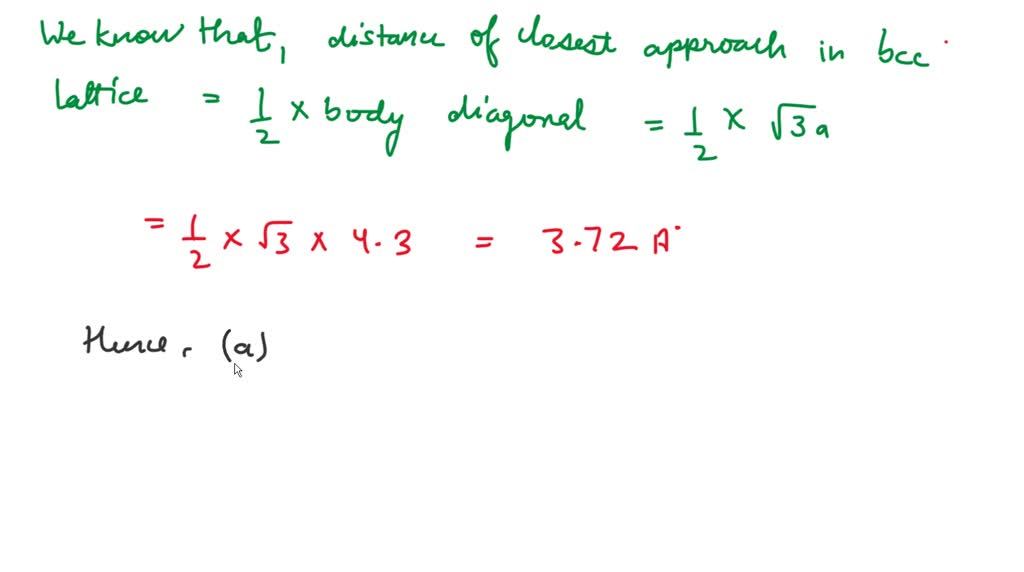 We know that, distance of closest approach in bcc
lattice = 1/2 × body diagonal = 1/2 × √3a
= 1/2 × √3 × 4.3 = 3.72 A°
Hence, (a)